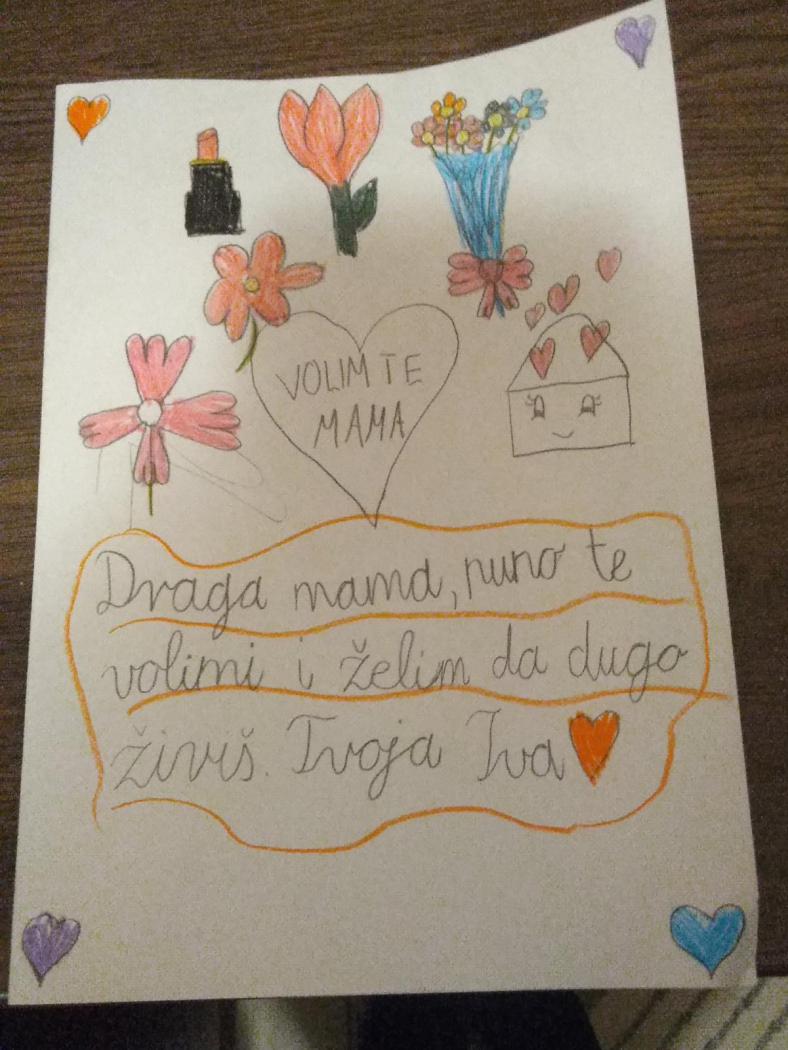 VOLIM TE
MAMA
Draga mama, puno te
volimi i želim da dugo
živiš. Tvoja Iva